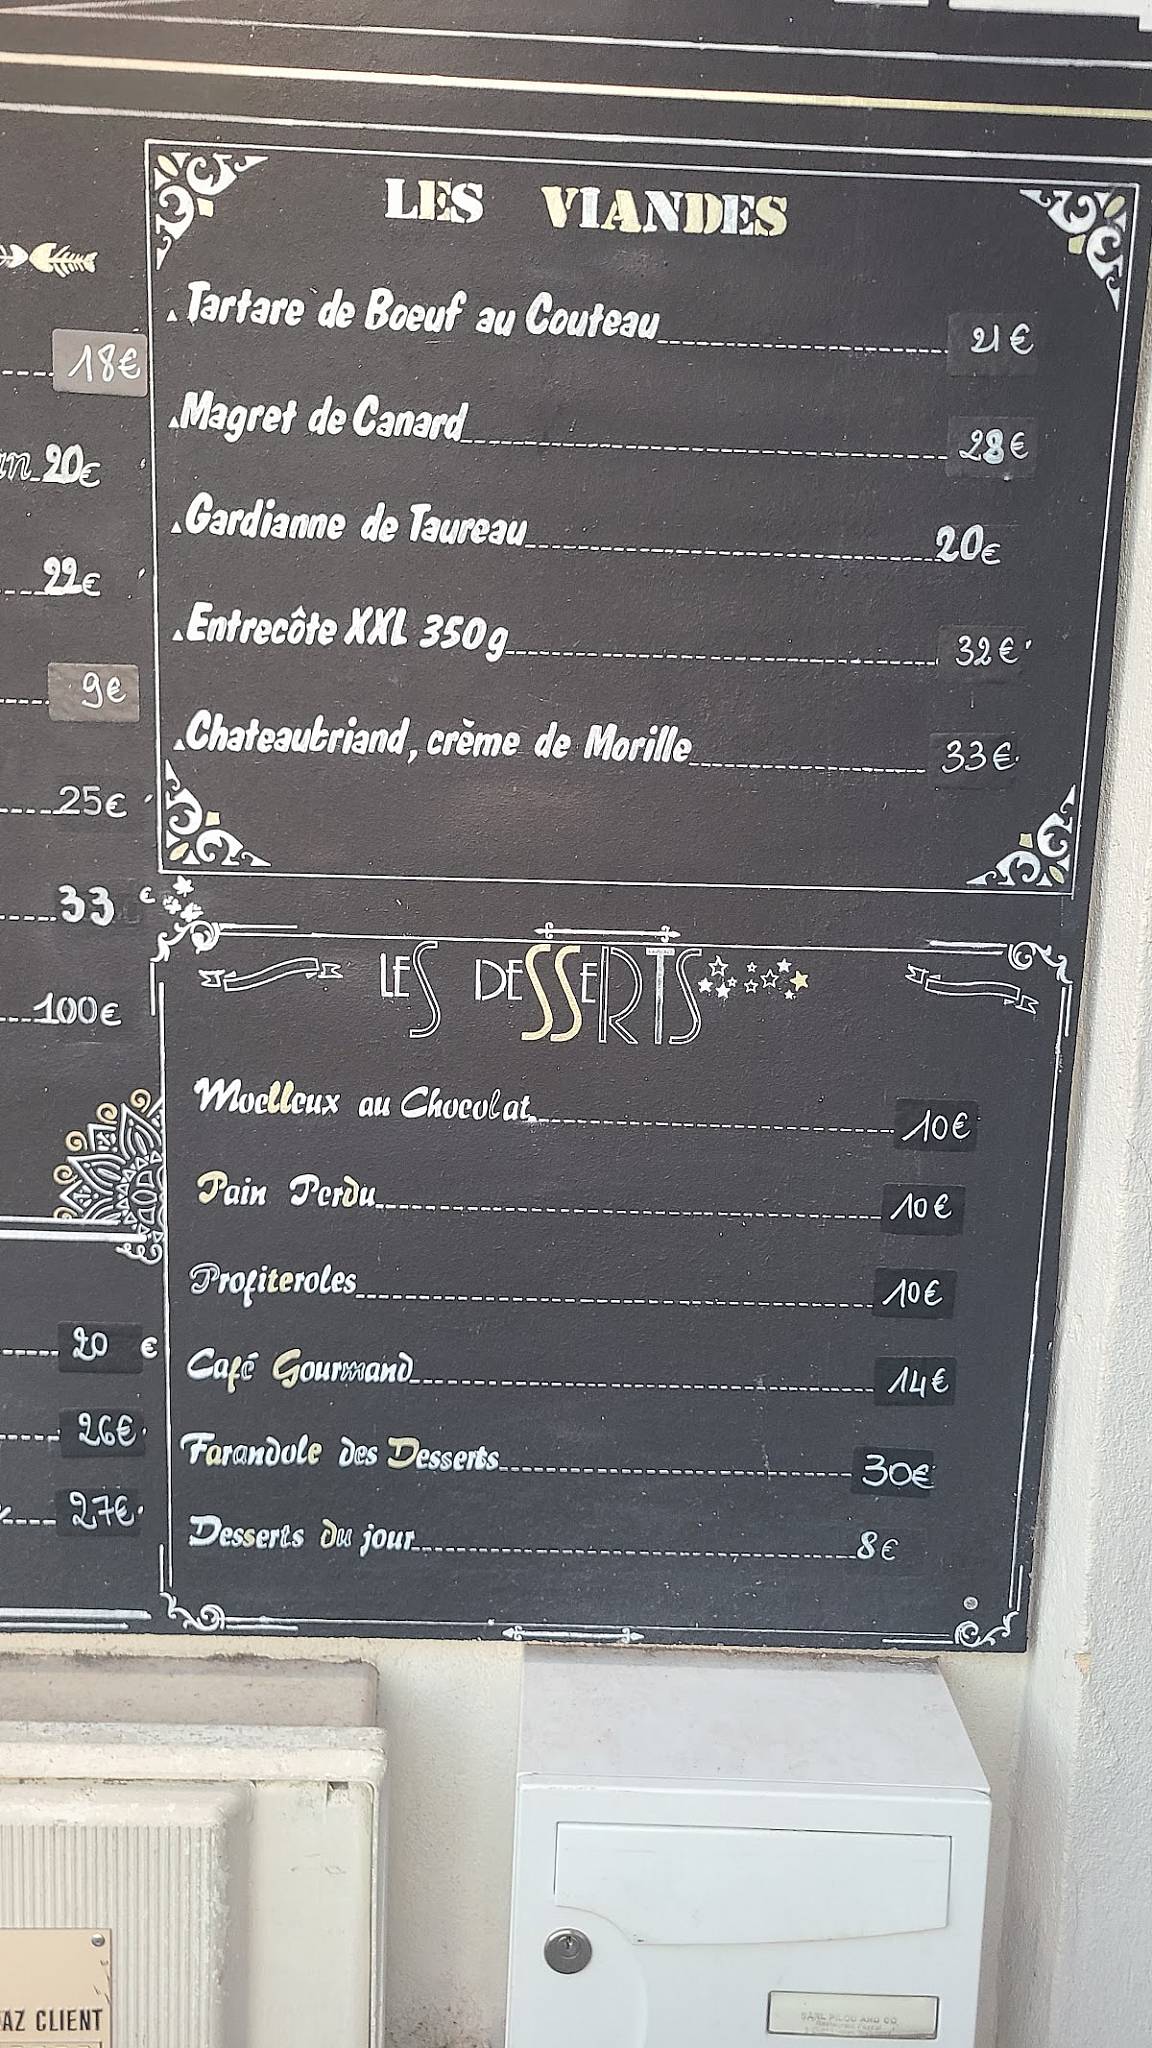 18€
20€
22€
9€
25€
33 €
100€
20 €
26€
27€
LES VIANDES
Tartare de Boeuf au Couteau 21€
Magret de Canard 28€
Gardianne de Taureau 20€
Entrecôte XXL 350g 32€
Chateaubriand, crème de Morille 33€
LES DESSERTS
Moelleux au Chocolat 10€
Pain Perdu 10€
Profiteroles 10€
Café Gourmand 14€
Farandole des Desserts 30€
Desserts du jour 8€
AZ CLIENT